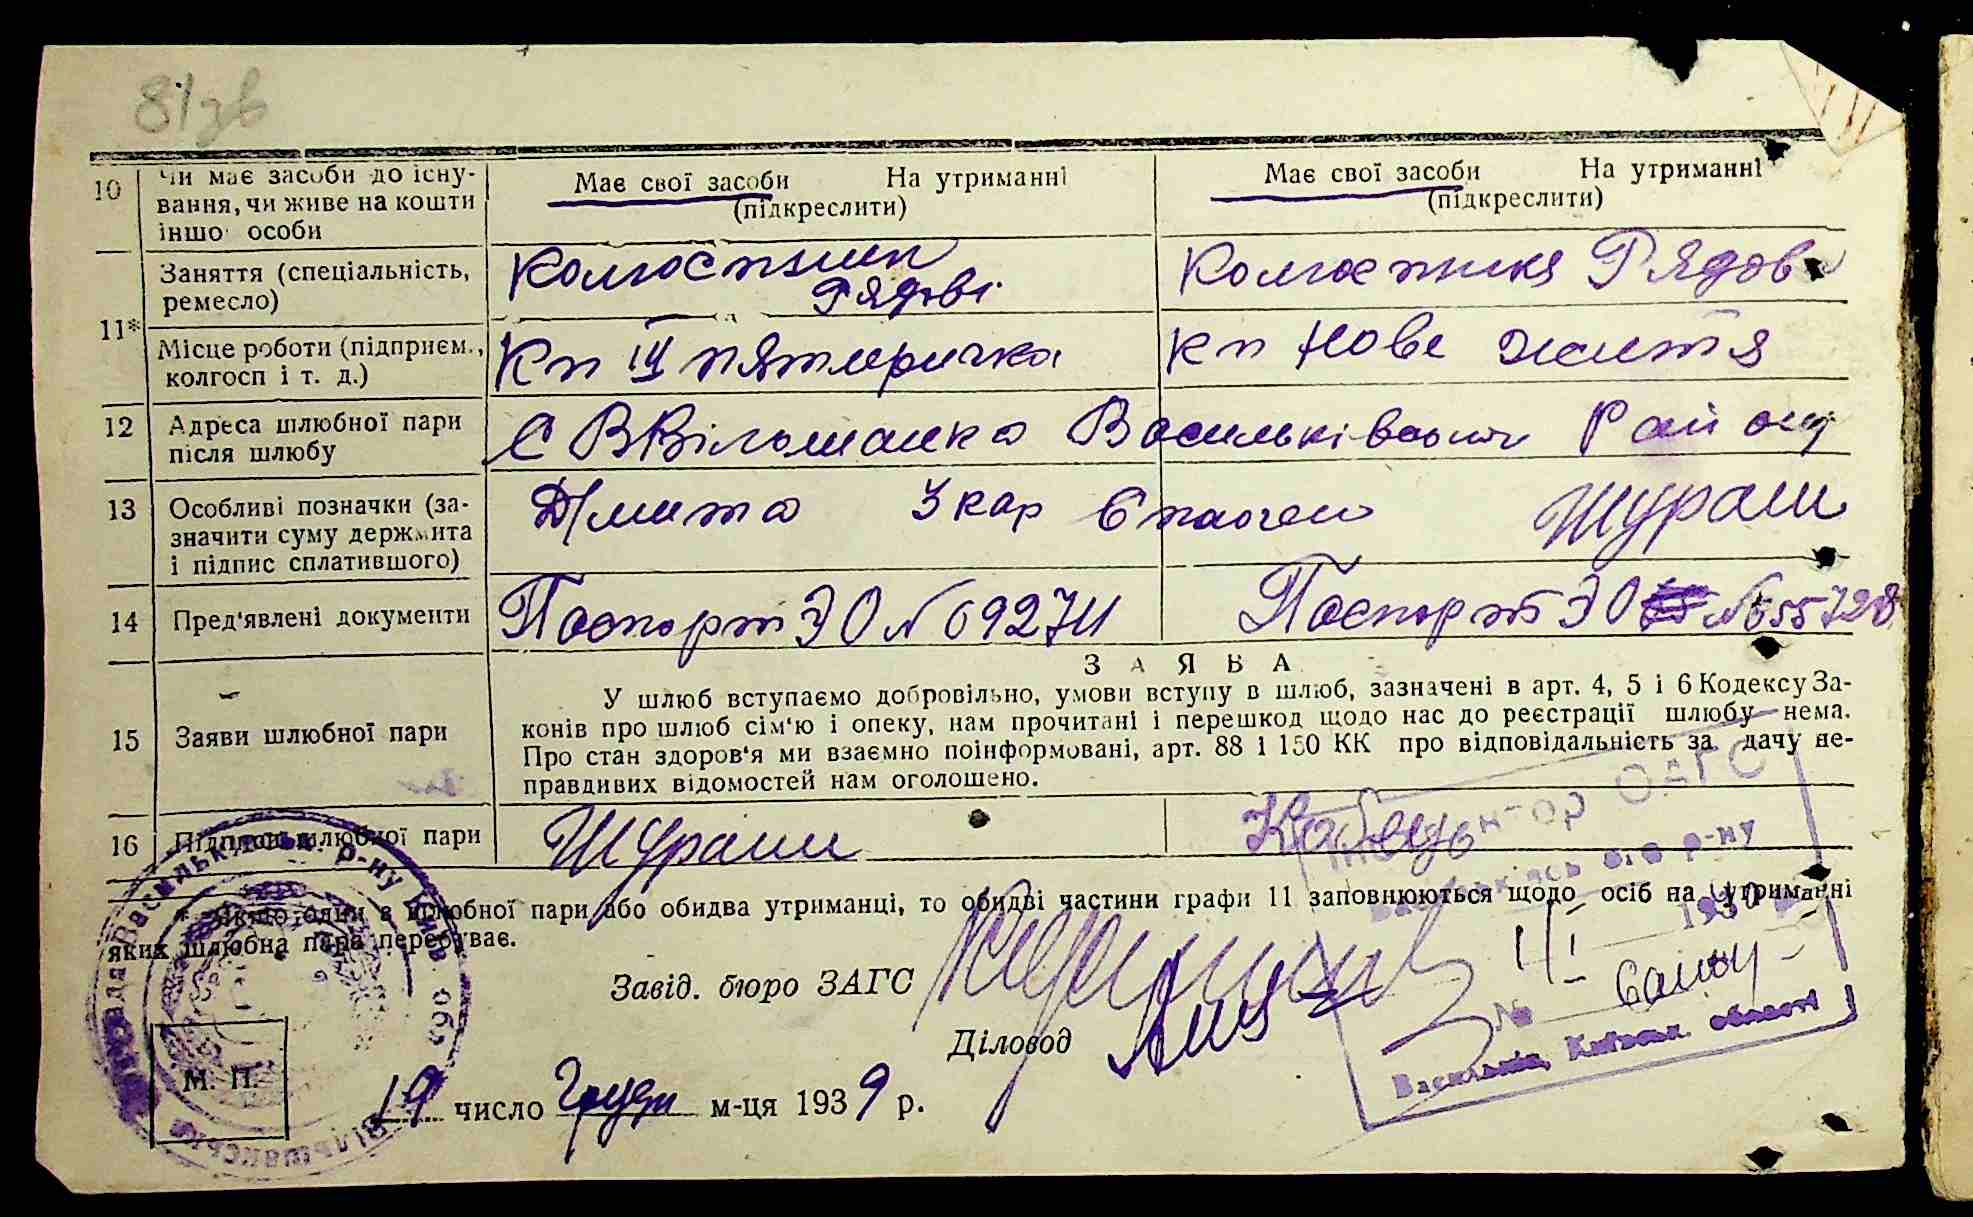 81зв
10 Чи має засоби до існу-
вання, чи живе на кошти
іншо особи
Має свої засоби На утриманні
(підкреслити)
Має свої засоби На утриманні
(підкреслити)
11* Заняття (спеціальність,
ремесло)
Колгоспник
Рядові
Колгоспниця Рядов
Місце роботи (підприєм.,
колгосп і т. д.)
Кп III пятиричка
Кп Нове життя
12 Адреса шлюбної пари
після шлюбу
С ВВільшанка Васильківського Району
13 Особливі позначки (за-
значити суму держмита
і підпис сплатившого)
Д/мито 3 кар Сплочено Шураш
14 Пред'явлені документи
Паспорт ЭО №692711
Паспорт ЭО №655728
15 Заяви шлюбної пари
ЗАЯВА
У шлюб вступаємо добровільно, умови вступу в шлюб, зазначені в арт. 4, 5 і 6 Кодексу За-
конів про шлюб сім'ю і опеку, нам прочитані і перешкод щодо нас до реєстрації шлюбу нема.
Про стан здоров'я ми взаємно поінформовані, арт. 88 і 150 КК про відповідальність за дачу не-
правдивих відомостей нам оголошено.
16 Підписи шлюбної пари
Шураш
Кабець
* Якщо один з шлюбної пари або обидва утриманці, то обидві частини графи 11 заповнюються щодо осіб на утриманні
яких шлюбна пара перебуває.
Завід. бюро ЗАГС
Діловод
М. П.
19 число Грудн м-ця 1939 р.
Васильківськ. р-ну Київ. обл.
ОАГС
р-ну
193
№
Васильків, Київськ. області